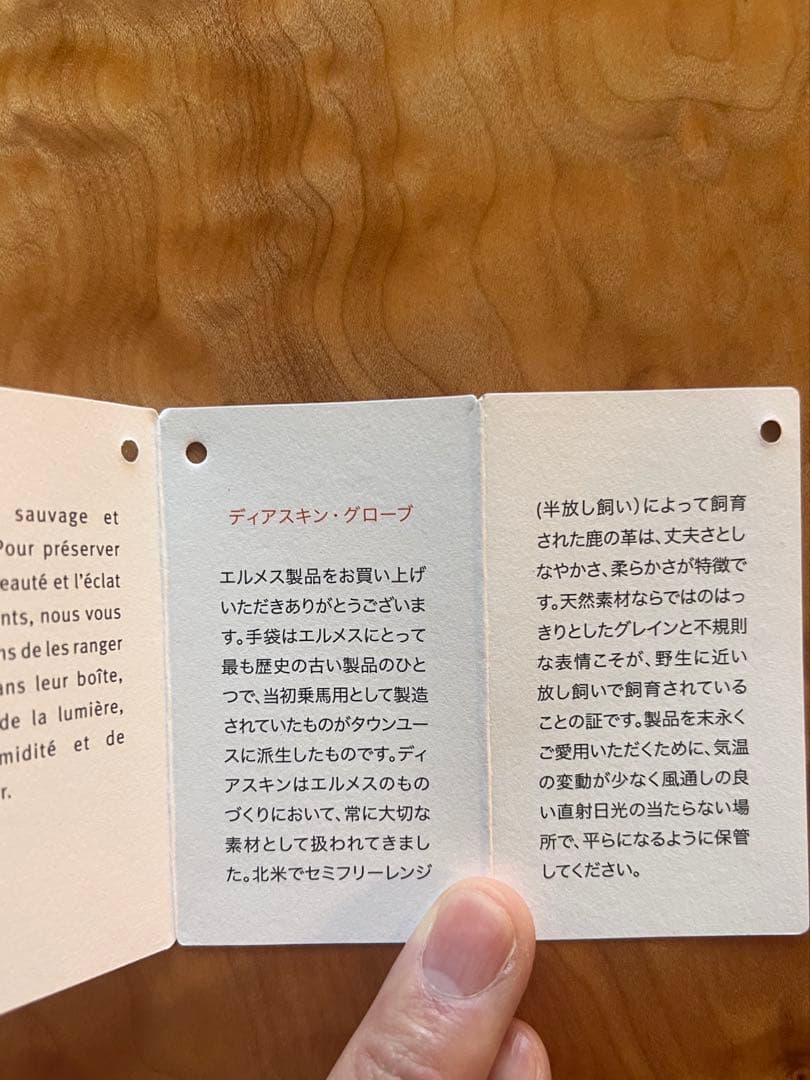 sauvage et
Pour préserver
eauté et l'éclat
nts, nous vous
ns de les ranger
ans leur boîte,
de la lumière,
midité et de
r.
ディアスキン・グローブ
エルメス製品をお買い上げ
いただきありがとうございま
す。手袋はエルメスにとって
最も歴史の古い製品のひと
つで、当初乗馬用として製造
されていたものがタウンユー
スに派生したものです。ディ
アスキンはエルメスのもの
づくりにおいて、常に大切な
素材として扱われてきまし
た。北米でセミフリーレンジ
(半放し飼い)によって飼育
された鹿の革は、丈夫さとし
なやかさ、柔らかさが特徴で
す。天然素材ならではのはっ
きりとしたグレインと不規則
な表情こそが、野生に近い
放し飼いで飼育されている
ことの証です。製品を末永く
ご愛用いただくために、気温
の変動が少なく風通しの良
い直射日光の当たらない場
所で、平らになるように保管
してください。